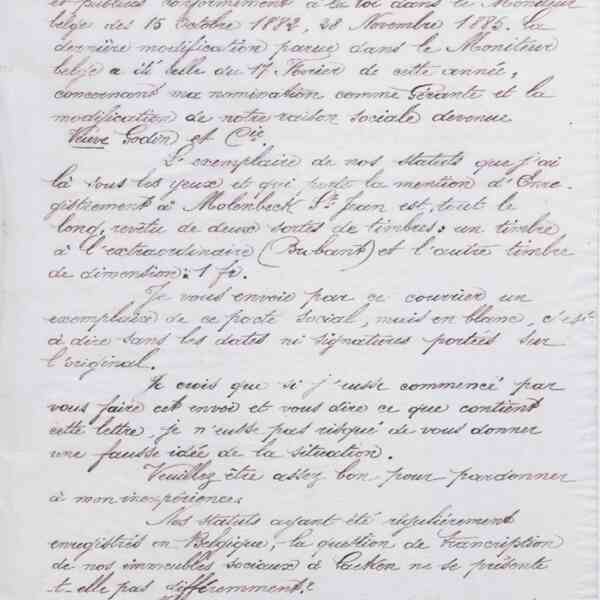 et publiés conformément à la loi dans le Moniteur
belge des 15 Octobre 1882, 28 Novembre 1885. La
dernière modification parue dans le Moniteur
belge a été celle du 17 Février de cette année,
concernant ma nomination comme Gérante et la
modification de notre raison sociale devenue
Veuve Godin et Cie.
L'exemplaire de nos statuts que j'ai
là sous les yeux et qui porte la mention d'Enre-
gistrement à Molenbeck St Jean est, tout le
long, revêtu de deux sortes de timbres: un timbre
à l'extraordinaire (Brabant) et l'autre timbre
de dimension: 1 fr.
Je vous envoie par ce courrier un
exemplaire de ce pacte social, mais en blanc, c'est-
à dire sans les dates ni signatures portées sur
l'original.
Je crois que si j'eusse commencé par
vous faire cet envoi et vous dire ce que contient
cette lettre, je n'eusse pas risqué de vous donner
une fausse idée de la situation.
Veuillez être assez bon pour pardonner
à mon inexpérience.
Nos statuts ayant été régulièrement
enregistrés en Belgique, la question de transcription
de nos immeubles sociaux à Laeken ne se présente
t-elle pas différemment?